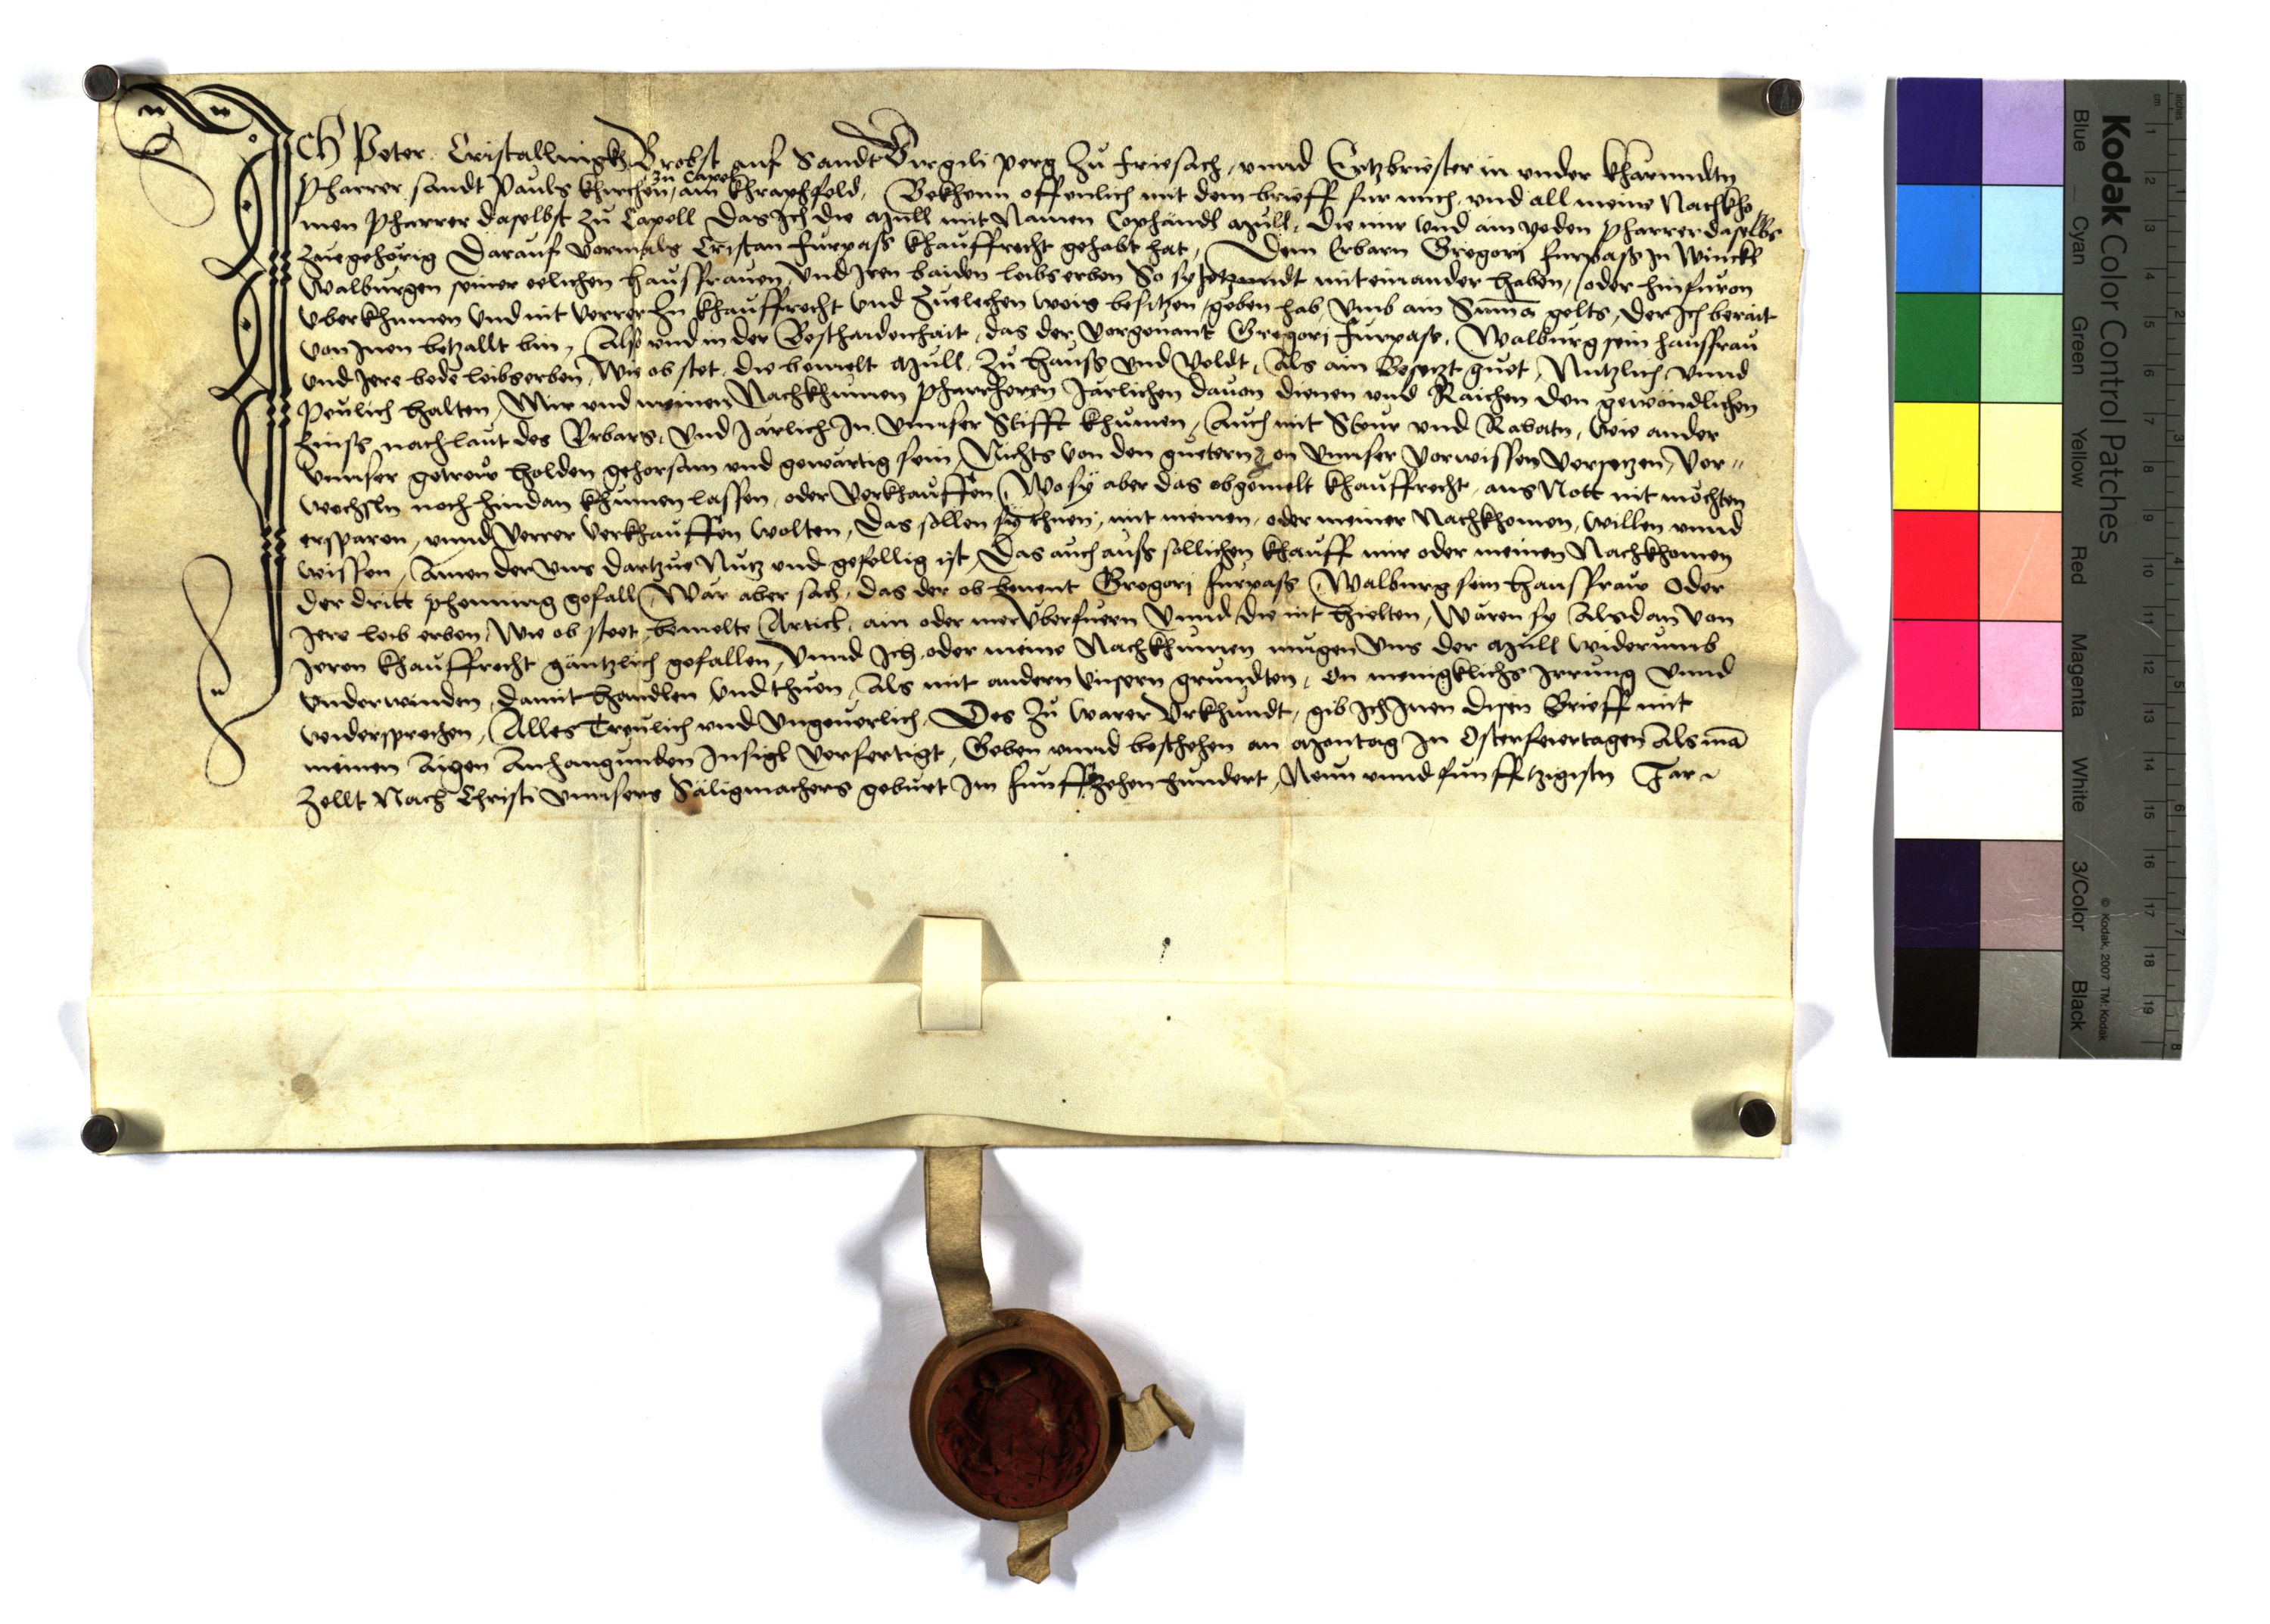 Ich Peter Cristallnigkh Brobst auf Sandt Virgili perg zu Friesach, vnnd Ertzbriester in vnder Kharnndtn
zu Capel
Pharrer sandt Pauls khirchen, am Khraphfeld, Bekhenn offenlich mit dem brieff fur mich, vnd all meine Nachkho
men Pharrer daselbst zu Capell Das Ich die Mull mit Namen Cophandl Mull, die mir vnd ain yeden Pharrer daselbs
zuegehorig Darauf vormals Cristan Furpass khauffrecht gehabt hat, Dem Erbarn Gregori Furpass in Winckl
Walburgen seiner eelichen haussfrauen, vnd Iren baiden leibs erben So sy Jetzundt miteinander haben, oder hinfuron
vberkhumen vnd nit verrer Zu khauffrecht vnd Zuelechen weis besitzen, geben hab, vmb ain Suma gelts, der Ich berait
von Inen betzallt bin, Also vnd in der Beschaidenhait, das der vorgenant Gregori Furpass, Walburg sein haussfrau
vnd Iere bede leibserben, wie ob stet, die bemelt Mull, Zu hauss vnd Veldt, Als ain Besetzt guet, Nutzlich, vnnd
Peulich halten, Mir vnd meinen Nachkhumen Pharrhern Jarlichen dauon dienen vnd Raichen den gewondlichen
Zinss nach laut des Vrbars, vnd Jarlich In vnnser Stifft khumen, Auch mit Steur vnd Rabatn, wie ander
vnnser getreue holden gehorsam vnd gewartig sein, Nichts von den guetern on vnnser vorwissen versetzen, ver"
wechsln noch hindan khumen lassen, oder verkhauffen, Wo sy aber das obgemelt khauffrecht, aus Nott nit mochten
ersparen, vnnd verrer verkhauffen wolten, Das sollen sy thuen, mit meinen, oder meiner Nachkhomen, willen vnnd
wissen, Ainen der vns dartzue Nutz vnd gefellig ist, Das auch auss sollichen khauff mir oder meinen Nachkhomen
der dritt phenning gefall, War aber sach, das der ob benent Gregori Furpass, Walburg sein haussfraw Oder
Iere leib erben, Wie ob steet, bemelte Artickl, ain oder mer vberfuern vnnd die nit hielten, Waren sy Alsdan von
Ieren khauffrecht gantzlich gefallen, vnnd Ich oder meine Nachkhumen mugen vns der Mull widerumb
vnderwinden, damit handlen vnd thuen, Als mit andern vnsern grundten, On menigklichs Irrung vnnd
widersprechen, Alles Treulich vnd vngeuerlich, Des Zu warer Vrkhundt, gib Ich Inen disen Brieff mit
meinen Aigen Anhangunden Insigl verfertigt, Geben vnnd beschehen an Montag In Osterfeiertagen Als ma
Zellt Nach Christi vnnsers Saligmachers geburt Im funffzehenhundert, Neun vnnd funfftzigistn Jar
Kodak Color Control Patches
Blue Cyan Green Yellow Red Magenta White 3/Color Black
© Kodak, 2007 TM: Kodak
inches 1 2 3 4 5 6 7 8
cm 1 2 3 4 5 6 7 8 9 10 11 12 13 14 15 16 17 18 19